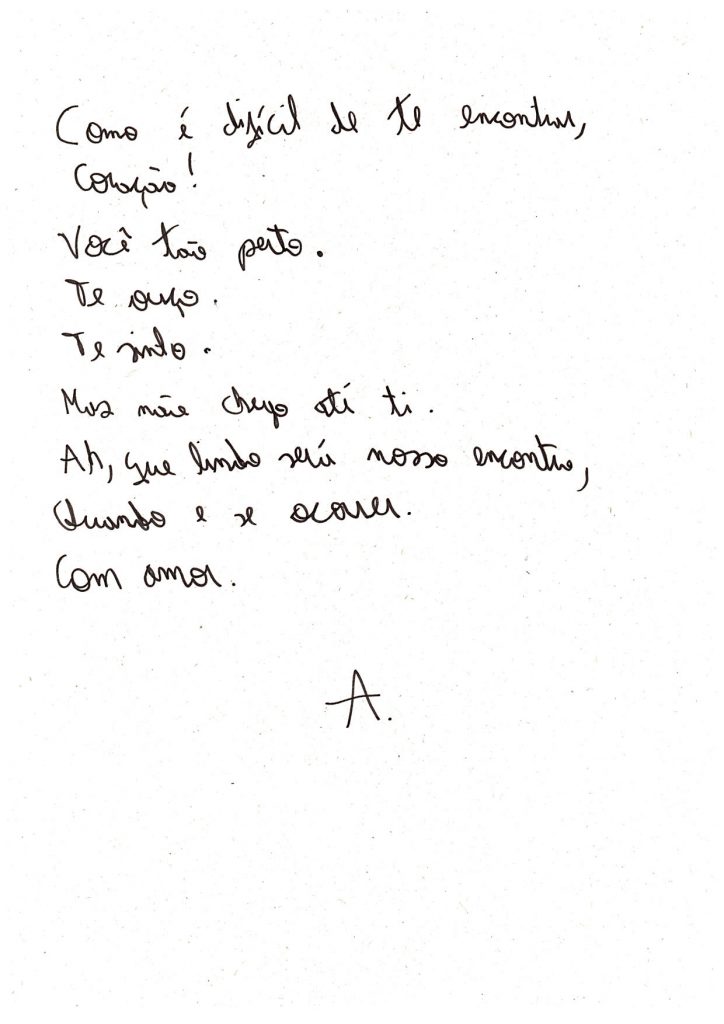 Como é difícil de te encontrar,
Coração!
Você tão perto.
Te ouço.
Te sinto.
Mas não chego até ti.
Ah, que lindo será nosso encontro,
Quando e se ocorrer.
Com amor.
A.